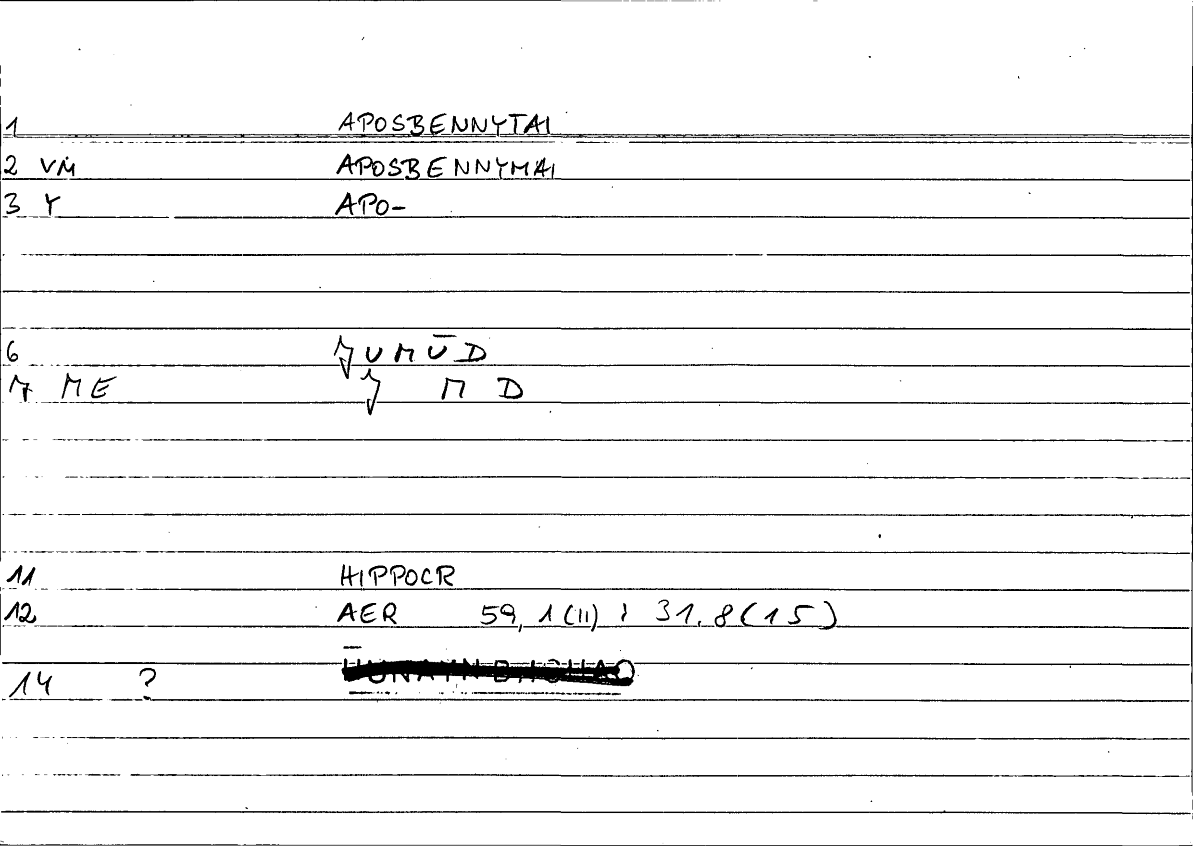 1 APOSBENNYTAI
2 VM APOSBENNYMAI
3 Y APO-
6 ǦUMŪD
7 ME Ǧ M D
11 HIPPOCR
12 AER 59,1(11) ; 31.8(15)
14 ?